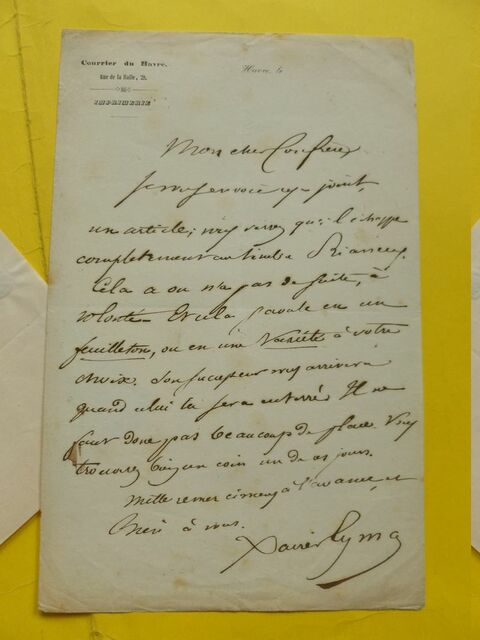 Courrier du Havre.
Rue de la Halle, 29.
IMPRIMERIE
Havre, le
Mon cher Confrère,
Je vous envoie ci-joint,
un article; vous verrez qu'il échappe
complètement au timbre Riancey.
Cela a ou n'a pas de suite, à
volonté. Et cela passe en un
feuilleton, ou en une Variété à votre
choix. Son successeur vous arrivera
quand celui-là sera enterré. Il ne
faut donc pas beaucoup de place. Vous
trouverez bien un coin un de ces jours.
Mille remerciements à l'avance, et
à vous.
Xavier Eyma